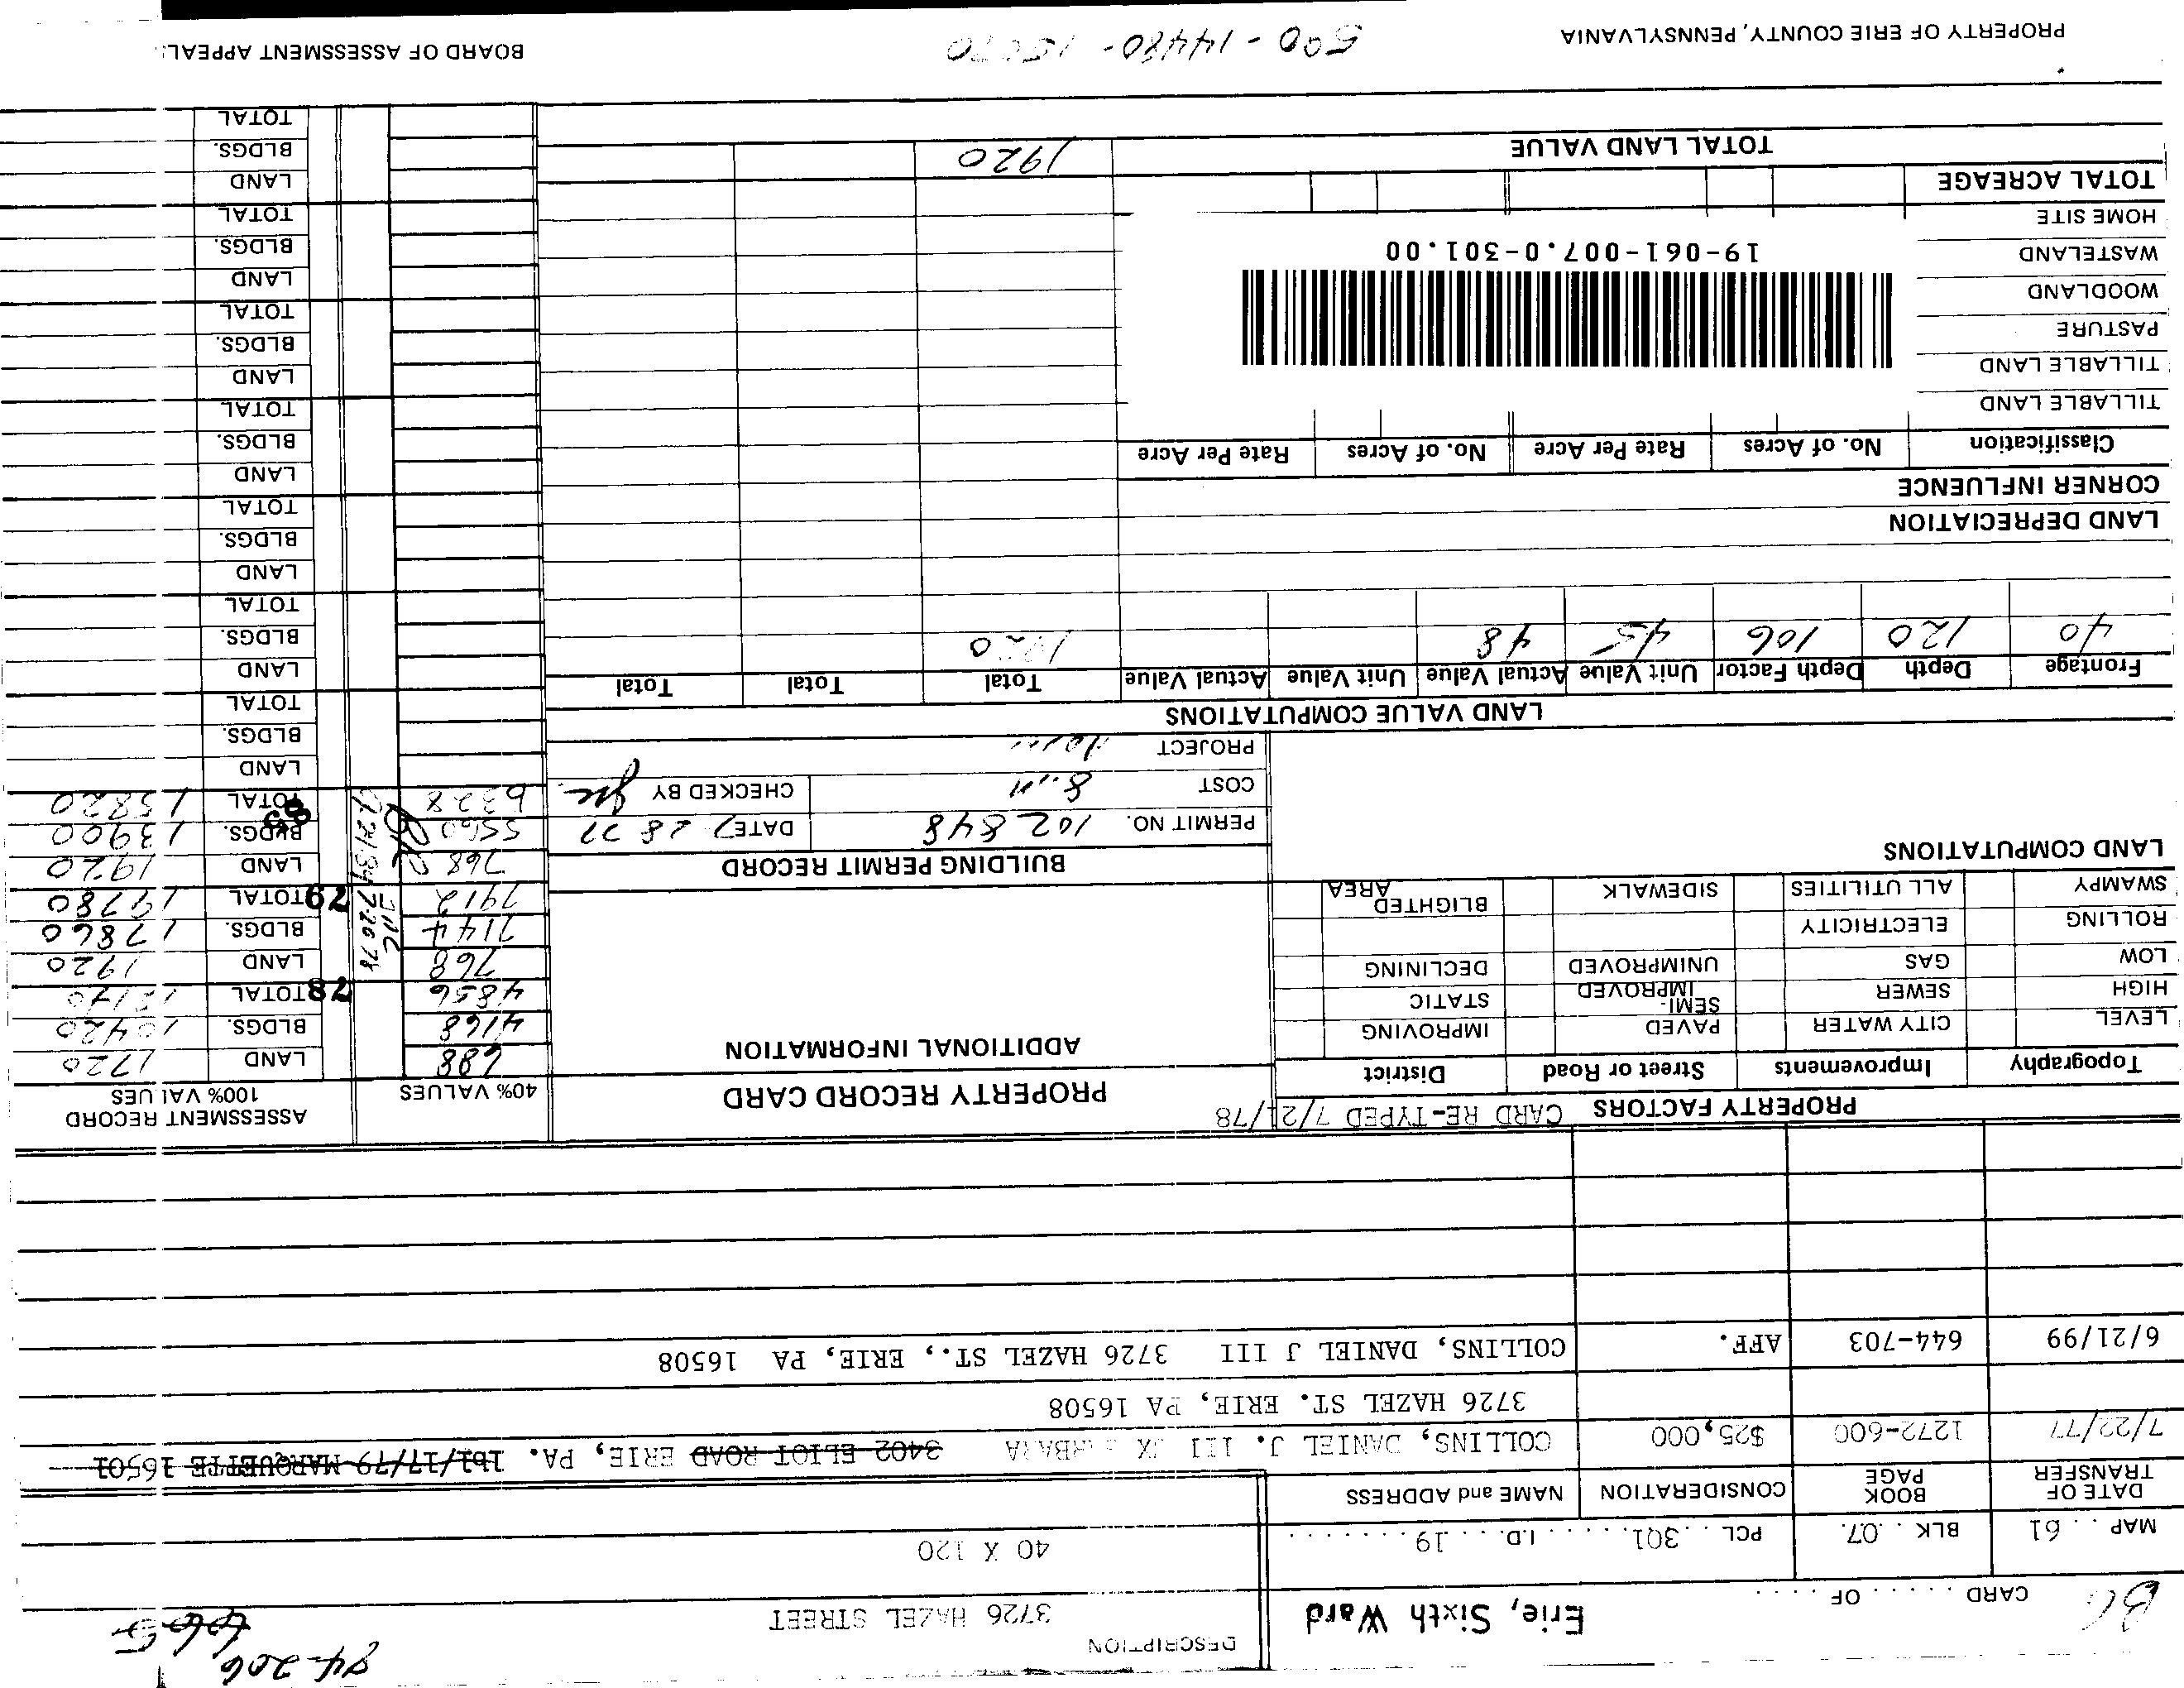 84-206
665
BG CARD . . . . . OF . . . .
Erie, Sixth Ward
DESCRIPTION
3726 HAZEL STREET
40 X 120
MAP . . 61 BLK . . 07. PCL . . 301. . . . . I.D. . . 19 . . . . . . .
DATE OF TRANSFER BOOK PAGE CONSIDERATION NAME and ADDRESS
7/22/77 1272-600 $25,000 COLLINS, DANIEL J. III UX BARBARA 3402 ELIOT ROAD ERIE, PA. 16501
3726 HAZEL ST. ERIE, PA 16508
6/21/99 644-703 AFF. COLLINS, DANIEL J III 3726 HAZEL ST., ERIE, PA 16508
PROPERTY FACTORS CARD RE-TYPED 7/21/78
Topography Improvements Street or Road District
LEVEL CITY WATER PAVED IMPROVING
HIGH SEWER SEMI-IMPROVED STATIC
LOW GAS UNIMPROVED DECLINING
ROLLING ELECTRICITY
SWAMPY ALL UTILITIES SIDEWALK BLIGHTED AREA
LAND COMPUTATIONS
PROPERTY RECORD CARD
ADDITIONAL INFORMATION
BUILDING PERMIT RECORD
PERMIT NO. 102848 DATE 7 28 77
COST CHECKED BY
PROJECT
40% VALUES ASSESSMENT RECORD 100% VALUES
688 LAND 1720
4168 BLDGS. 10420
4856 78 TOTAL 12140
768 LAND 1920
7144 BLDGS. 17860
7912 79 TOTAL 19780
7-26 78
768 LAND 1920
5560 BLDGS. 13900
6328 TOTAL 15820
LAND
BLDGS.
TOTAL
LAND
BLDGS.
TOTAL
LAND
BLDGS.
TOTAL
LAND
BLDGS.
TOTAL
LAND
BLDGS.
TOTAL
LAND
BLDGS.
TOTAL
LAND
BLDGS.
TOTAL
LAND VALUE COMPUTATIONS
Frontage Depth Depth Factor Unit Value Actual Value Unit Value Actual Value Total Total Total
40 120 106 45 48 1920
LAND DEPRECIATION
CORNER INFLUENCE
Classification No. of Acres Rate Per Acre No. of Acres Rate Per Acre
TILLABLE LAND
TILLABLE LAND
PASTURE
WOODLAND
WASTELAND
HOME SITE
19-061-007.0-301.00
TOTAL ACREAGE
TOTAL LAND VALUE 1920
PROPERTY OF ERIE COUNTY, PENNSYLVANIA 500-14480- BOARD OF ASSESSMENT APPEAL